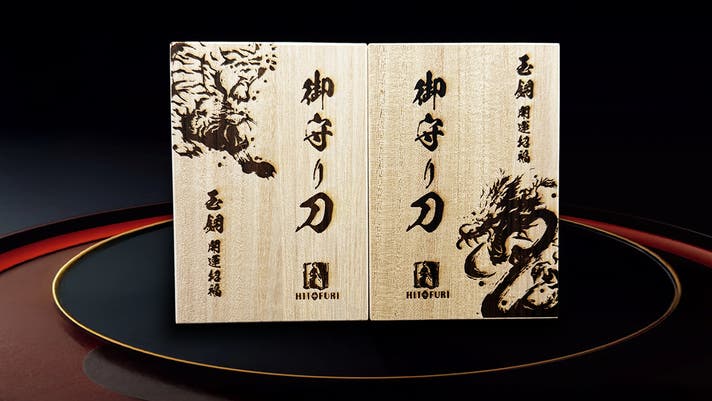 御守り刀
玉鋼 開運招福
HITOFURI
玉鋼 開運招福
御守り刀
HITOFURI